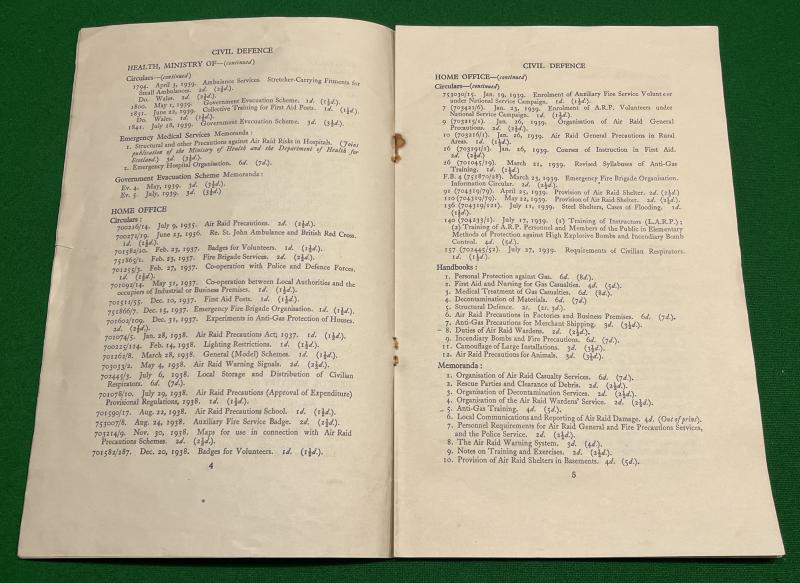 CIVIL DEFENCE
HEALTH, MINISTRY OF—(continued)
Circulars—(continued)
1794. April 3, 1939. Ambulance Services. Stretcher-Carrying Fitments for
Small Ambulances. 2d. (2½d.)
Do. Wales. 2d. (2½d.)
1800. May 1, 1939. Government Evacuation Scheme. 1d. (1½d.).
1831. June 22, 1939. Collective Training for First Aid Posts. 1d. (1½d.)
Do. Wales. 1d. (1½d.)
1841. July 18, 1939. Government Evacuation Scheme. 3d. (3½d.)
Emergency Medical Services Memoranda :
1. Structural and other Precautions against Air Raid Risks in Hospitals. (Joint
publication of the Ministry of Health and the Department of Health for
Scotland.) 3d. (3½d.)
2. Emergency Hospital Organisation. 6d. (7d.)
Government Evacuation Scheme Memoranda :
Ev. 4. May, 1939. 3d. (3½d.)
Ev. 5. July, 1939. 3d. (3½d.)
HOME OFFICE
Circulars :
700216/14. July 9, 1935. Air Raid Precautions. 2d. (2½d.).
700272/19. June 23, 1936. Re. St. John Ambulance and British Red Cross.
1d. (1½d.).
701582/10. Feb. 23, 1937. Badges for Volunteers. 1d. (1½d.).
751865/1. Feb. 23, 1937. Fire Brigade Services. 2d. (2½d.).
701255/3. Feb. 27, 1937. Co-operation with Police and Defence Forces.
1d. (1½d.).
701092/14. May 31, 1937. Co-operation between Local Authorities and the
occupiers of Industrial or Business Premises. 1d. (1½d.).
701511/55. Dec. 10, 1937. First Aid Posts. 1d. (1½d.).
751866/7. Dec. 15, 1937. Emergency Fire Brigade Organisation. 1d. (1½d.)
701602/109. Dec. 31, 1937. Experiments in Anti-Gas Protection of Houses.
2d. (2½d.)
701074/5. Jan. 28, 1938. Air Raid Precautions Act; 1937. 1d. (1½d.).
700225/114. Feb. 14, 1938. Lighting Restrictions. 1d. (1½d.)
702262/8. March 28, 1938. General (Model) Schemes. 1d. (1½d.).
703033/2. May 4, 1938. Air Raid Warning Signals. 2d. (2½d.).
702445/3. July 6, 1938. Local Storage and Distribution of Civilian
Respirators. 6d. (7d.)
701078/10. July 29, 1938. Air Raid Precautions (Approval of Expenditure)
Provisional Regulations, 1938. 1d. (1½d.)
701590/17. Aug. 22, 1938. Air Raid Precautions School. 1d. (1½d.)
753007/8. Aug. 24, 1938. Auxiliary Fire Service Badge. 2d. (2½d.)
703214/9. Nov. 30, 1938. Maps for use in connection with Air Raid
Precautions Schemes. 2d. (2½d.)
701582/287. Dec. 20, 1938. Badges for Volunteers. 1d. (1½d.)
4
CIVIL DEFENCE
HOME OFFICE—(continued)
Circulars—(continued)
753030/15. Jan. 19, 1939. Enrolment of Auxiliary Fire Service Volunteer
under National Service Campaign. 1d. (1½d.)
7 (703421/6). Jan. 23, 1939. Enrolment of A.R.P. Volunteers under
National Service Campaign. 1d. (1½d.)
9 (703215/1). Jan. 26, 1939. Organisation of Air Raid General
Precautions. 2d. (2½d.)
10 (703216/1). Jan. 26, 1939. Air Raid General Precautions in Rural
Areas. 1d. (1½d.)
16 (703191/1). Jan. 26, 1939. Courses of Instruction in First Aid.
2d. (2½d.)
26 (701045/19). March 21, 1939. Revised Syllabuses of Anti-Gas
Training. 1d. (1½d.)
F.B. 4 (751870/28). March 23, 1939. Emergency Fire Brigade Organisation.
Information Circular. 2d. (2½d.)
91 (704319/79). April 25, 1939. Provision of Air Raid Shelter. 2d. (2½d.)
110 (704319/79). May 22, 1939. Provision of Air Raid Shelter. 2d. (2½d.)
136 (704319/121). July 11, 1939. Steel Shelters, Cases of Flooding. 1d.
(1½d.)
140 (704233/2). July 17, 1939. (1) Training of Instructors (L.A.R.P.) ;
(2) Training of A.R.P. Personnel and Members of the Public in Elementary
Methods of Protection against High Explosive Bombs and Incendiary Bomb
Control. 4d. (5d.)
157 (702445/52). July 27, 1939. Requirements of Civilian Respirators.
1d. (1½d.)
Handbooks :
1. Personal Protection against Gas. 6d. (8d.)
2. First Aid and Nursing for Gas Casualties. 4d. (5d.)
3. Medical Treatment of Gas Casualties. 6d. (8d.)
4. Decontamination of Materials. 6d. (7d.)
5. Structural Defence. 2s. (2s. 3d.)
6. Air Raid Precautions in Factories and Business Premises. 6d. (7d.)
7. Anti-Gas Precautions for Merchant Shipping. 3d. (3½d.)
8. Duties of Air Raid Wardens. 2d. (2½d.)
9. Incendiary Bombs and Fire Precautions. 6d. (7d.)
11. Camouflage of Large Installations. 3d. (3½d.)
12. Air Raid Precautions for Animals. 3d. (3½d.)
Memoranda :
1. Organisation of Air Raid Casualty Services. 6d. (7d.)
2. Rescue Parties and Clearance of Debris. 2d. (2½d.)
3. Organisation of Decontamination Services. 2d. (2½d.)
4. Organisation of the Air Raid Wardens' Service. 2d. (2½d.)
5. Anti-Gas Training. 4d. (5d.)
6. Local Communications and Reporting of Air Raid Damage. 4d. (Out of print).
7. Personnel Requirements for Air Raid General and Fire Precautions Services,
and the Police Service. 2d. (2½d.)
8. The Air Raid Warning System. 3d. (4d.)
9. Notes on Training and Exercises. 2d. (2½d.)
10. Provision of Air Raid Shelters in Basements. 4d. (5d.)
5